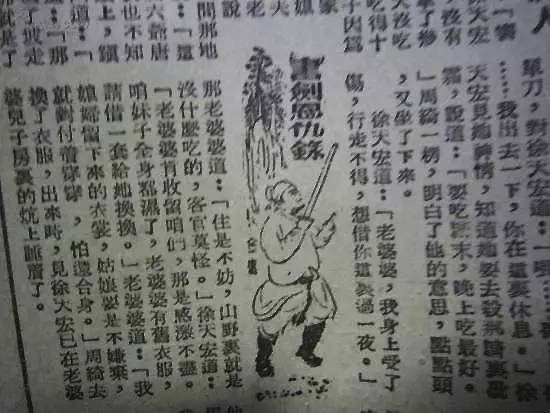 人
徐天宏
沒有
吃得十
子因爲
單刀,對徐天宏道:「
……我出去一下,你在這裏休息。」徐
天宏見她神情,知道她要去殺那
霜,說道:「要吃末,晚上吃最好。
」周綺一楞,明白了他的意思,點點頭
,又坐了下來。
徐天宏道:「老婆婆,我身上受了
傷,行走不得,想借你這裏過一夜。」
書劍恩仇錄
金庸
間那地
六爺唐
也不知
上,躓
道:「
那老婆婆道:「住是不妨,山野裏就是
沒什麼吃的,客官莫怪。」徐天宏道:
「老婆婆肯收留咱們,那是感激不盡。
咱妹子全身都濕了,老婆婆有舊衣服,
請借一套給她換換。」老婆婆道:「我
媳婦留下來的衣裳,姑娘要是不嫌棄,
就對付着穿穿,怕還合身。」周綺去
換了衣服,出來時,見徐天宏已在老婆
婆兒子房裏的炕上睡着了。